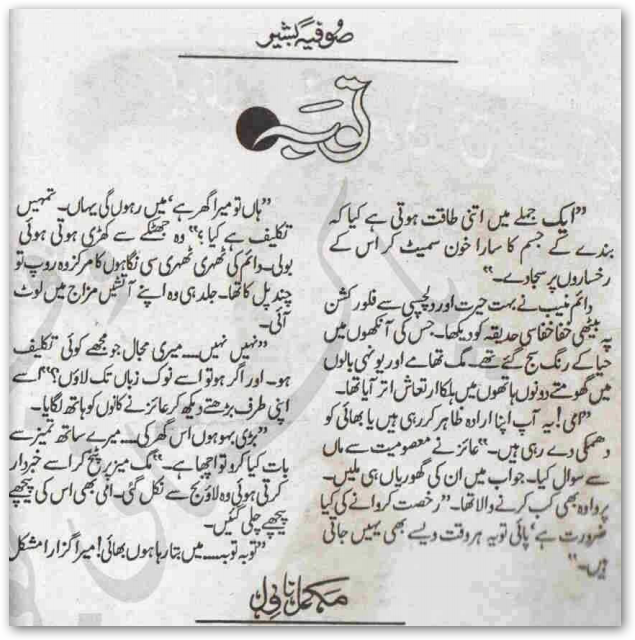 صوفیہ بشیر
”ایک جملے میں اتنی طاقت ہوتی ہے کیا کہ
بندے کے جسم کا سارا خون سمیٹ کر اس کے
رخساروں پر سجا دے۔“
دائم منیب نے بہت حیرت اور دلچسپی سے فلور کشن
پہ بیٹھی خفا خفا سی حدیقہ کو دیکھا۔ جس کی آنکھوں میں
حیا کے رنگ سج گئے تھے۔ مگ تھامے اور یونہی بالوں
میں گھومتے دونوں ہاتھوں میں ہلکا ارتعاش اتر آیا تھا۔
”امی! یہ آپ اپنا ارادہ ظاہر کر رہی ہیں یا بھائی کو
دھمکی دے رہی ہیں۔“ عائز نے معصومیت سے ماں
سے سوال کیا۔ جواب میں ان کی گھوریاں ہی ملیں۔
پر وہ دہ بھی کب کرنے والا تھا۔ ”رخصت کروانے کی کیا
ضرورت ہے‘ پائی تو یہ ہر وقت ویسے بھی یہیں جاتی
ہیں۔“
”ہاں تو میرا گھر ہے‘ میں رہوں گی یہاں۔ تمہیں
تکلیف ہے کیا؟“ وہ جھٹکے سے کھڑی ہوتی ہوئی
بولی۔ دائم کی ٹھہری ٹھہری سی نگاہوں کا مرکز وہ روپ تو
چند پل کا تھا۔ جلد ہی وہ اپنے آتشیں مزاج میں لوٹ
آئی۔
”نہیں نہیں.... میری مجال جو مجھے کوئی تکلیف
ہو۔ اور اگر ہو تو اسے نوک زباں تک لاؤں؟“ اسے
اپنی طرف بڑھتے دیکھ کر عائز نے کانوں کو ہاتھ لگایا۔
”بڑی بہو ہوں اس گھر کی.... میرے ساتھ تمیز سے
بات کیا کرو تو اچھا ہے۔“ مگ میز پر پٹخ کر اسے خبردار
کرتی ہوئی وہ لاؤنج سے نکل گئی۔ امی بھی اس کی پیچھے
پیچھے چلی گئیں۔
”توبہ توبہ.... میں بتا رہا ہوں بھائی! میرا گزارا مشکل
مکمل ناول